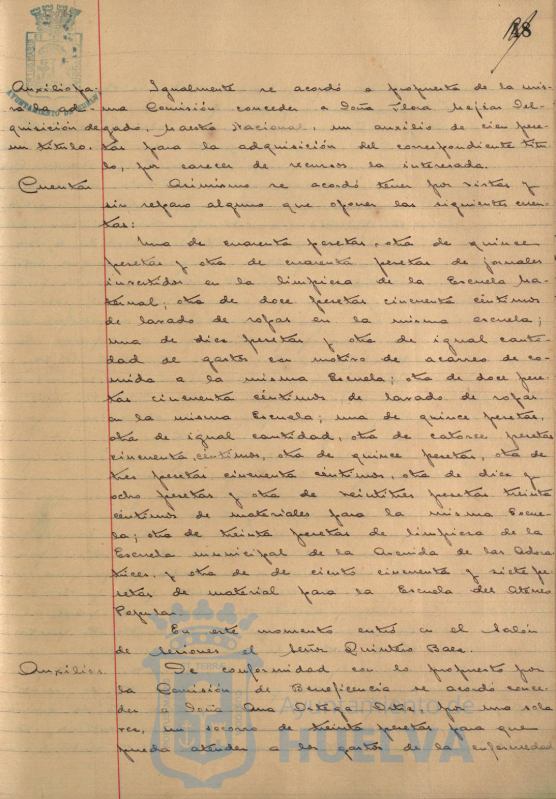 18
AYUNTAMIENTO DE HUELVA
Auxilio pa-
ra la ad-
quisición de
un título.
Igualmente se acordó a propuesta de la mis-
ma Comisión conceder a Doña Flora Mejías Del-
gado, Maestra Nacional, un auxilio de cien pese-
tas para la adquisición del correspondiente títu-
lo, por carecer de recursos la interesada.
Cuentas
Asimismo se acordó tener por vistas y
sin reparo alguno que oponer las siguientes cuen-
tas:
Una de cuarenta pesetas, otra de quince
pesetas y otra de cuarenta pesetas de jornales
invertidos en la limpieza de la Escuela Ma-
ternal; otra de doce pesetas cincuenta céntimos
de lavado de ropas en la misma escuela;
una de diez pesetas y otra de igual canti-
dad de gastos con motivo de acarreo de co-
mida a la misma Escuela; otra de doce pese-
tas cincuenta céntimos de lavado de ropas
en la misma Escuela; una de quince pesetas,
otra de igual cantidad, otra de catorce pesetas
cincuenta céntimos, otra de quince pesetas, otra de
tres pesetas cincuenta céntimos, otra de diez y
ocho pesetas y otra de veintitres pesetas treinta
céntimos de materiales para la misma Escue-
la; otra de treinta pesetas de limpieza de la
Escuela municipal de la Avenida de las Adora-
trices, y otra de de ciento cincuenta y siete pe-
setas de material para la Escuela del Ateneo
Popular.
En este momento entró en el Salón
de sesiones el Señor Quintero Baez.
Auxilios.
De conformidad con lo propuesto por
la Comisión de Beneficencia se acordó conce-
der a Doña Ana Ortega Ortiz, por una sola
vez, un socorro de treinta pesetas para que
pueda atender a los gastos de la enfermedad
Ayuntamiento de
HUELVA